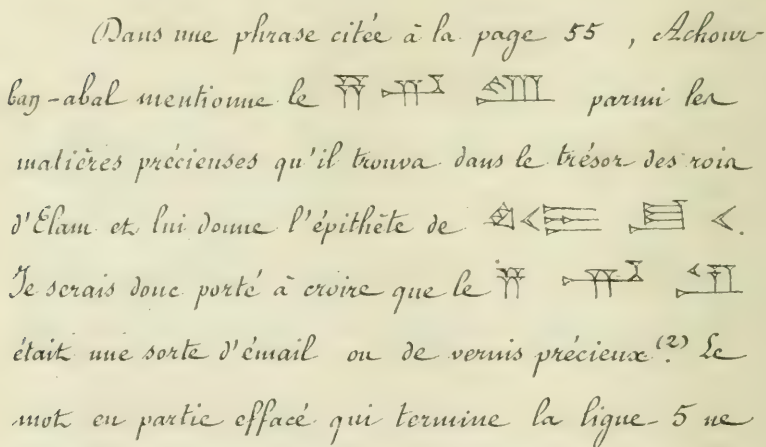 Dans une phrase citée à la page 55, Achour-
bay-abal mentionne le parmi les
matières précieuses qu'il trouva dans le trésor des rois
d'Elam et lui donne l'épithète de .
Je serais donc porté à croire que le
était une sorte d'émail ou de vernis précieux (2). Le
mot en partie effacé qui termine la ligne 5 ne